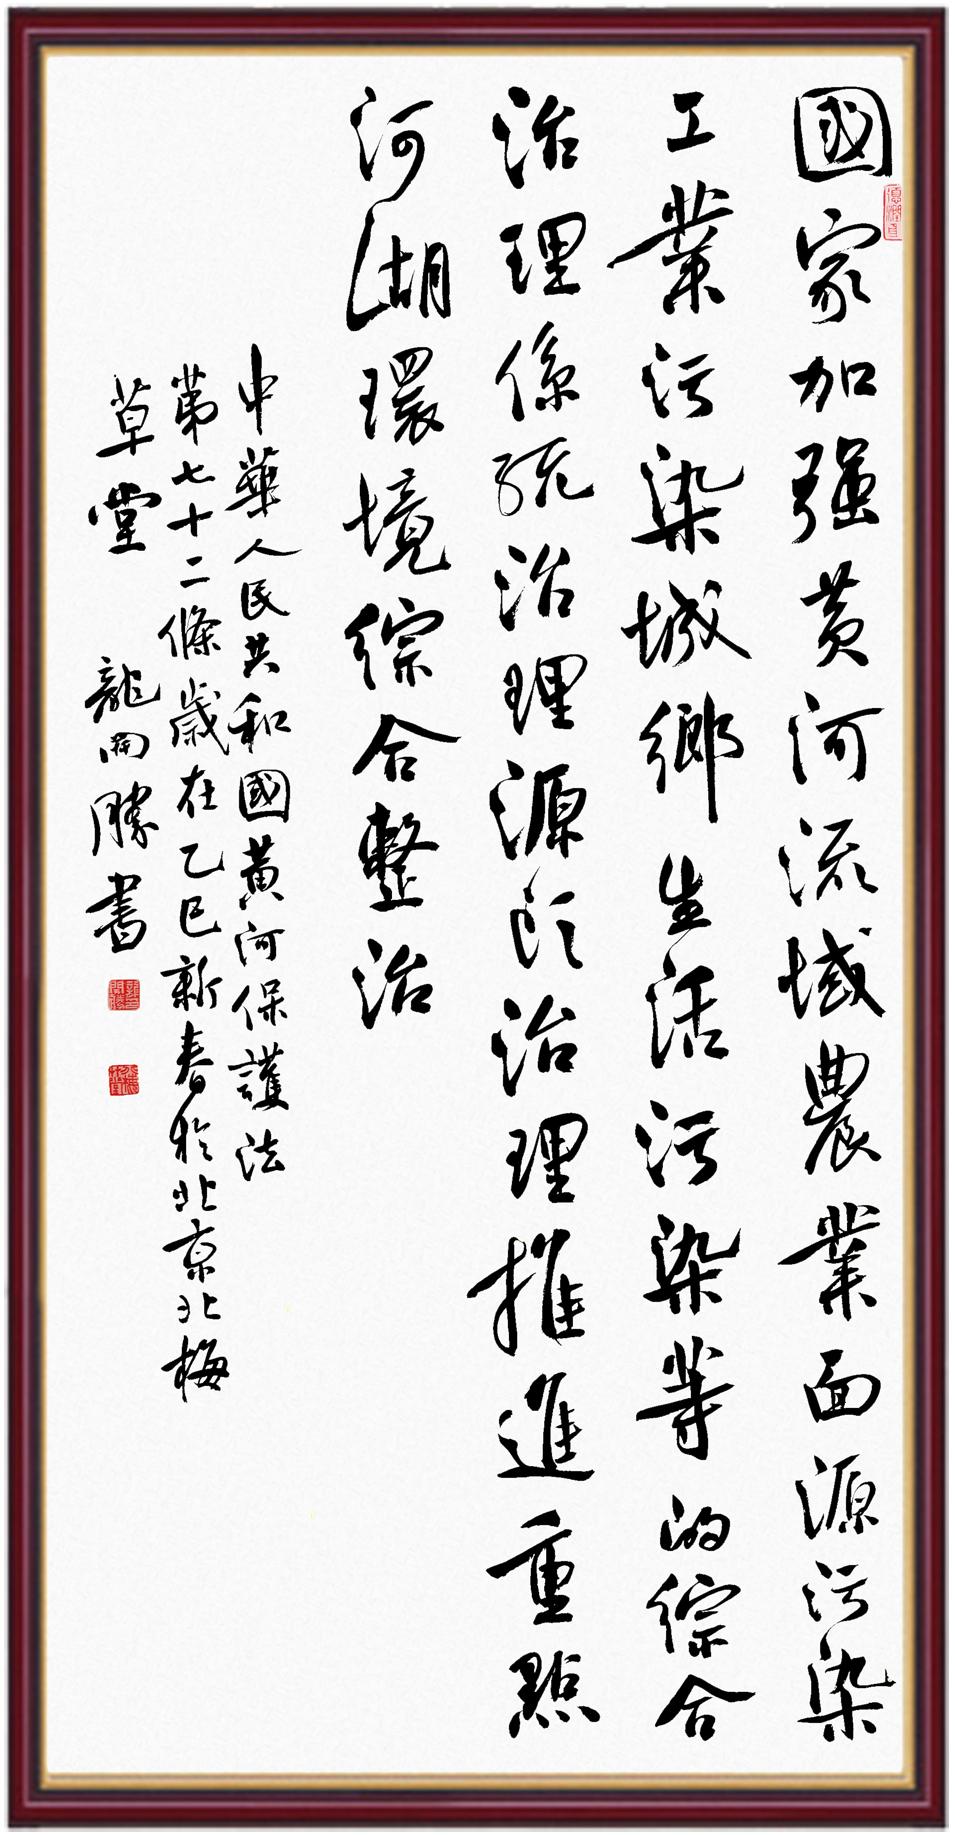 國家加强黄河流域農業面源污染
工業污染城鄉生活污染等的綜合
治理係統治理源头治理推進重點
河湖環境綜合整治
中華人民共和國黄河保護法
第七十二條歲在乙巳新春於北京北梅
草堂 龍開勝書